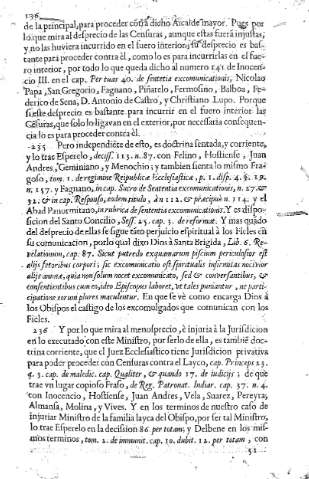 136
de la principal, para proceder côtra dicho Alcalde mayor. Pues por
lo que mira al desprecio de las Censuras, aunque estas fuera injustas;
y no las huviera incurrido en el fuero interior; su desprecio es bas-
tante para proceder contra èl, como lo es para incurrirlas en el fue-
ro interior, por todo lo que queda dicho al numero 141. de Inocen-
cio III. en el cap. Per tuas 40. de sentētia excomunicationis, Nicolao
Papa, San Gregorio, Fagnano, Piñatelo, Fermosino, Balboa, Fe-
derico de Sena, D. Antonio de Castro, y Christiano Lupo. Porque
si este desprecio es bastante para incurrir en el fuero interior las
Cēsuras, que solo lo ligavan en el exterior, por necessaria consequen-
cia lo es para proceder contra èl.
235 Pero independiēte de esto, es doctrina sentada, y corriente,
y lo trae Esperelo, decis. 113. n. 87. con Felino, Hostiense, Juan
Andres, Geminiano, y Menochio; y tambien sienta lo mismo Fra-
goso, tom. 1. de regimine Reipublicæ Ecclesiasticæ, p. 1. disp. 4. §. 19.
n. 157. y Fagnano, in cap. Sacro de Sentētia excomunicationis, n. 27. &
32. & in cap. Responso, eodem titulo, à n. 112. & præcipuè n. 114. y el
Abad Panormitano, in rubrica de sententia excomunicationis. Y es dispo-
sicion del Santo Concilio, Sess. 25. cap. 3. de reformat. Y mas quādo
del desprecio de ellas se sigue tāto perjuicio espiritual à los Fieles cō
su comunicacion, por lo qual dixo Dios à Santa Brigida, Lib. 6. Re-
velationum, cap. 87. Sicut putredo exquamarum piscium periculosior est
alijs fetoribus corpori; sic excomunicatio est spiritualis infirmitas nocivior
alijs animæ, quia non solum nocet excomunicato, sed & conversantibus, &
consentientibus cum eo, ideo Episcopos laboret, ut tales puniantur, ne parti-
cipatione serum plures maculentur. En que se vè como encarga Dios à
los Obispos el castigo de los excomulgados que comunican con los
Fieles.
236 Y por lo que mira al menosprecio, è injuria à la Jurisdicion
en lo executado con este Ministro, por serlo de ella, es tambiē doc-
trina corriente, que el Juez Ecclesiastico tiene Jurisdicion privativa
para poder proceder con Censuras contra el Layco, cap. Princeps 23.
q. 5. cap. de maledic. cap. Qualiter, & quando 17. de iudicijs; de que
trae vn lugar copioso Fraso, de Reg. Patronat. Indiar. cap. 37. n. 4.
con Inocencio, Hostiense, Juan Andres, Vela, Suarez, Pereyra,
Almansa, Molina, y Vives. Y en los terminos de nuestro caso de
injuriar Ministro de la familia layca del Obispo, por ser tal Ministro,
lo trae Esperelo en la decision 86. per totam; y Delbene en los mis-
mos terminos, tom. 2. de immunit. cap. 10. dubit. 12. per totam, con